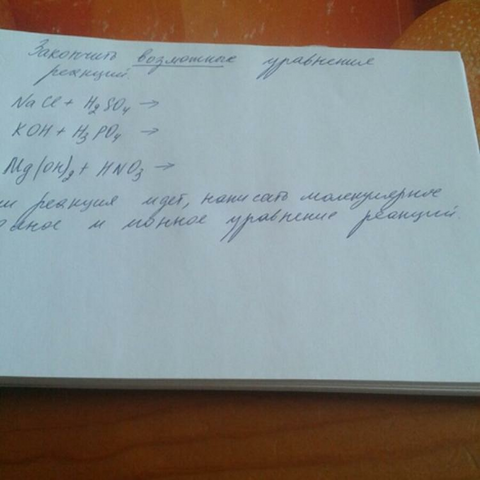 Закончить возможные уравнения
реакций
NaCl + H₂SO₄ →
KOH + H₃PO₄ →
Mg(OH)₂ + HNO₃ →
реакция идет, написать молекулярное
и ионное уравнение реакций.